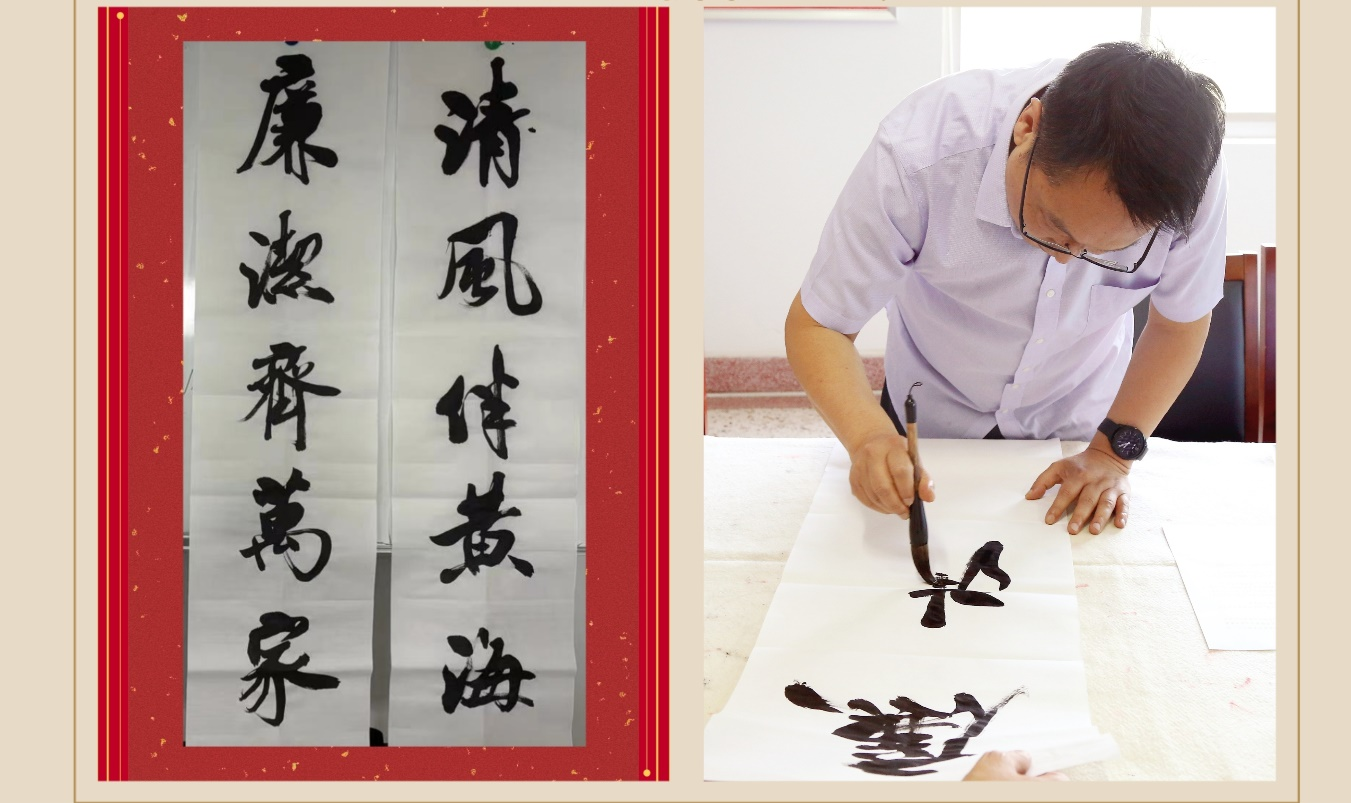 清風伴黃海
廉潔齊萬家